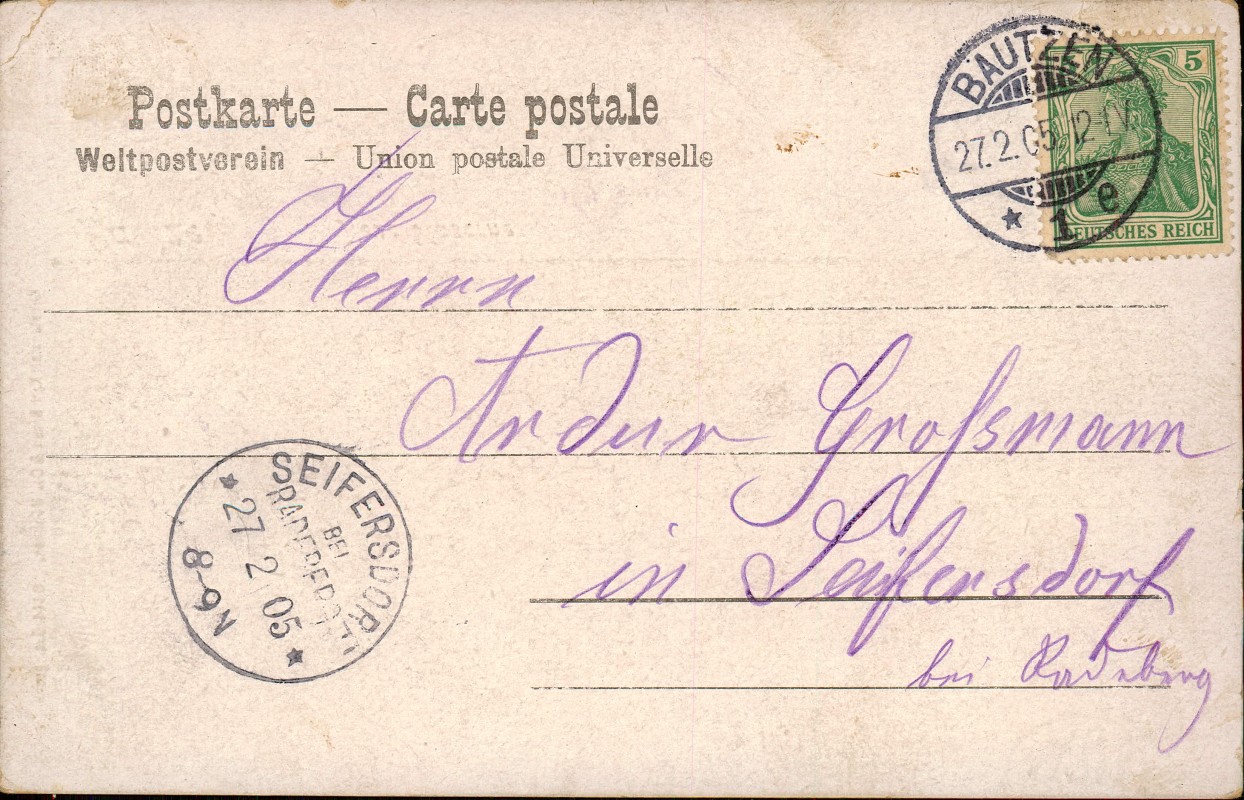 Postkarte — Carte postale
Weltpostverein — Union postale Universelle
BAUTZEN
27.2.05. 12-1V.
* 1 e
5
DEUTSCHES REICH
Herrn
Ardur Großmann
in Seifersdorf
bei Radeberg
SEIFERSDORF
BEI
RADEBERG
* 27 2 05 *
8-9N